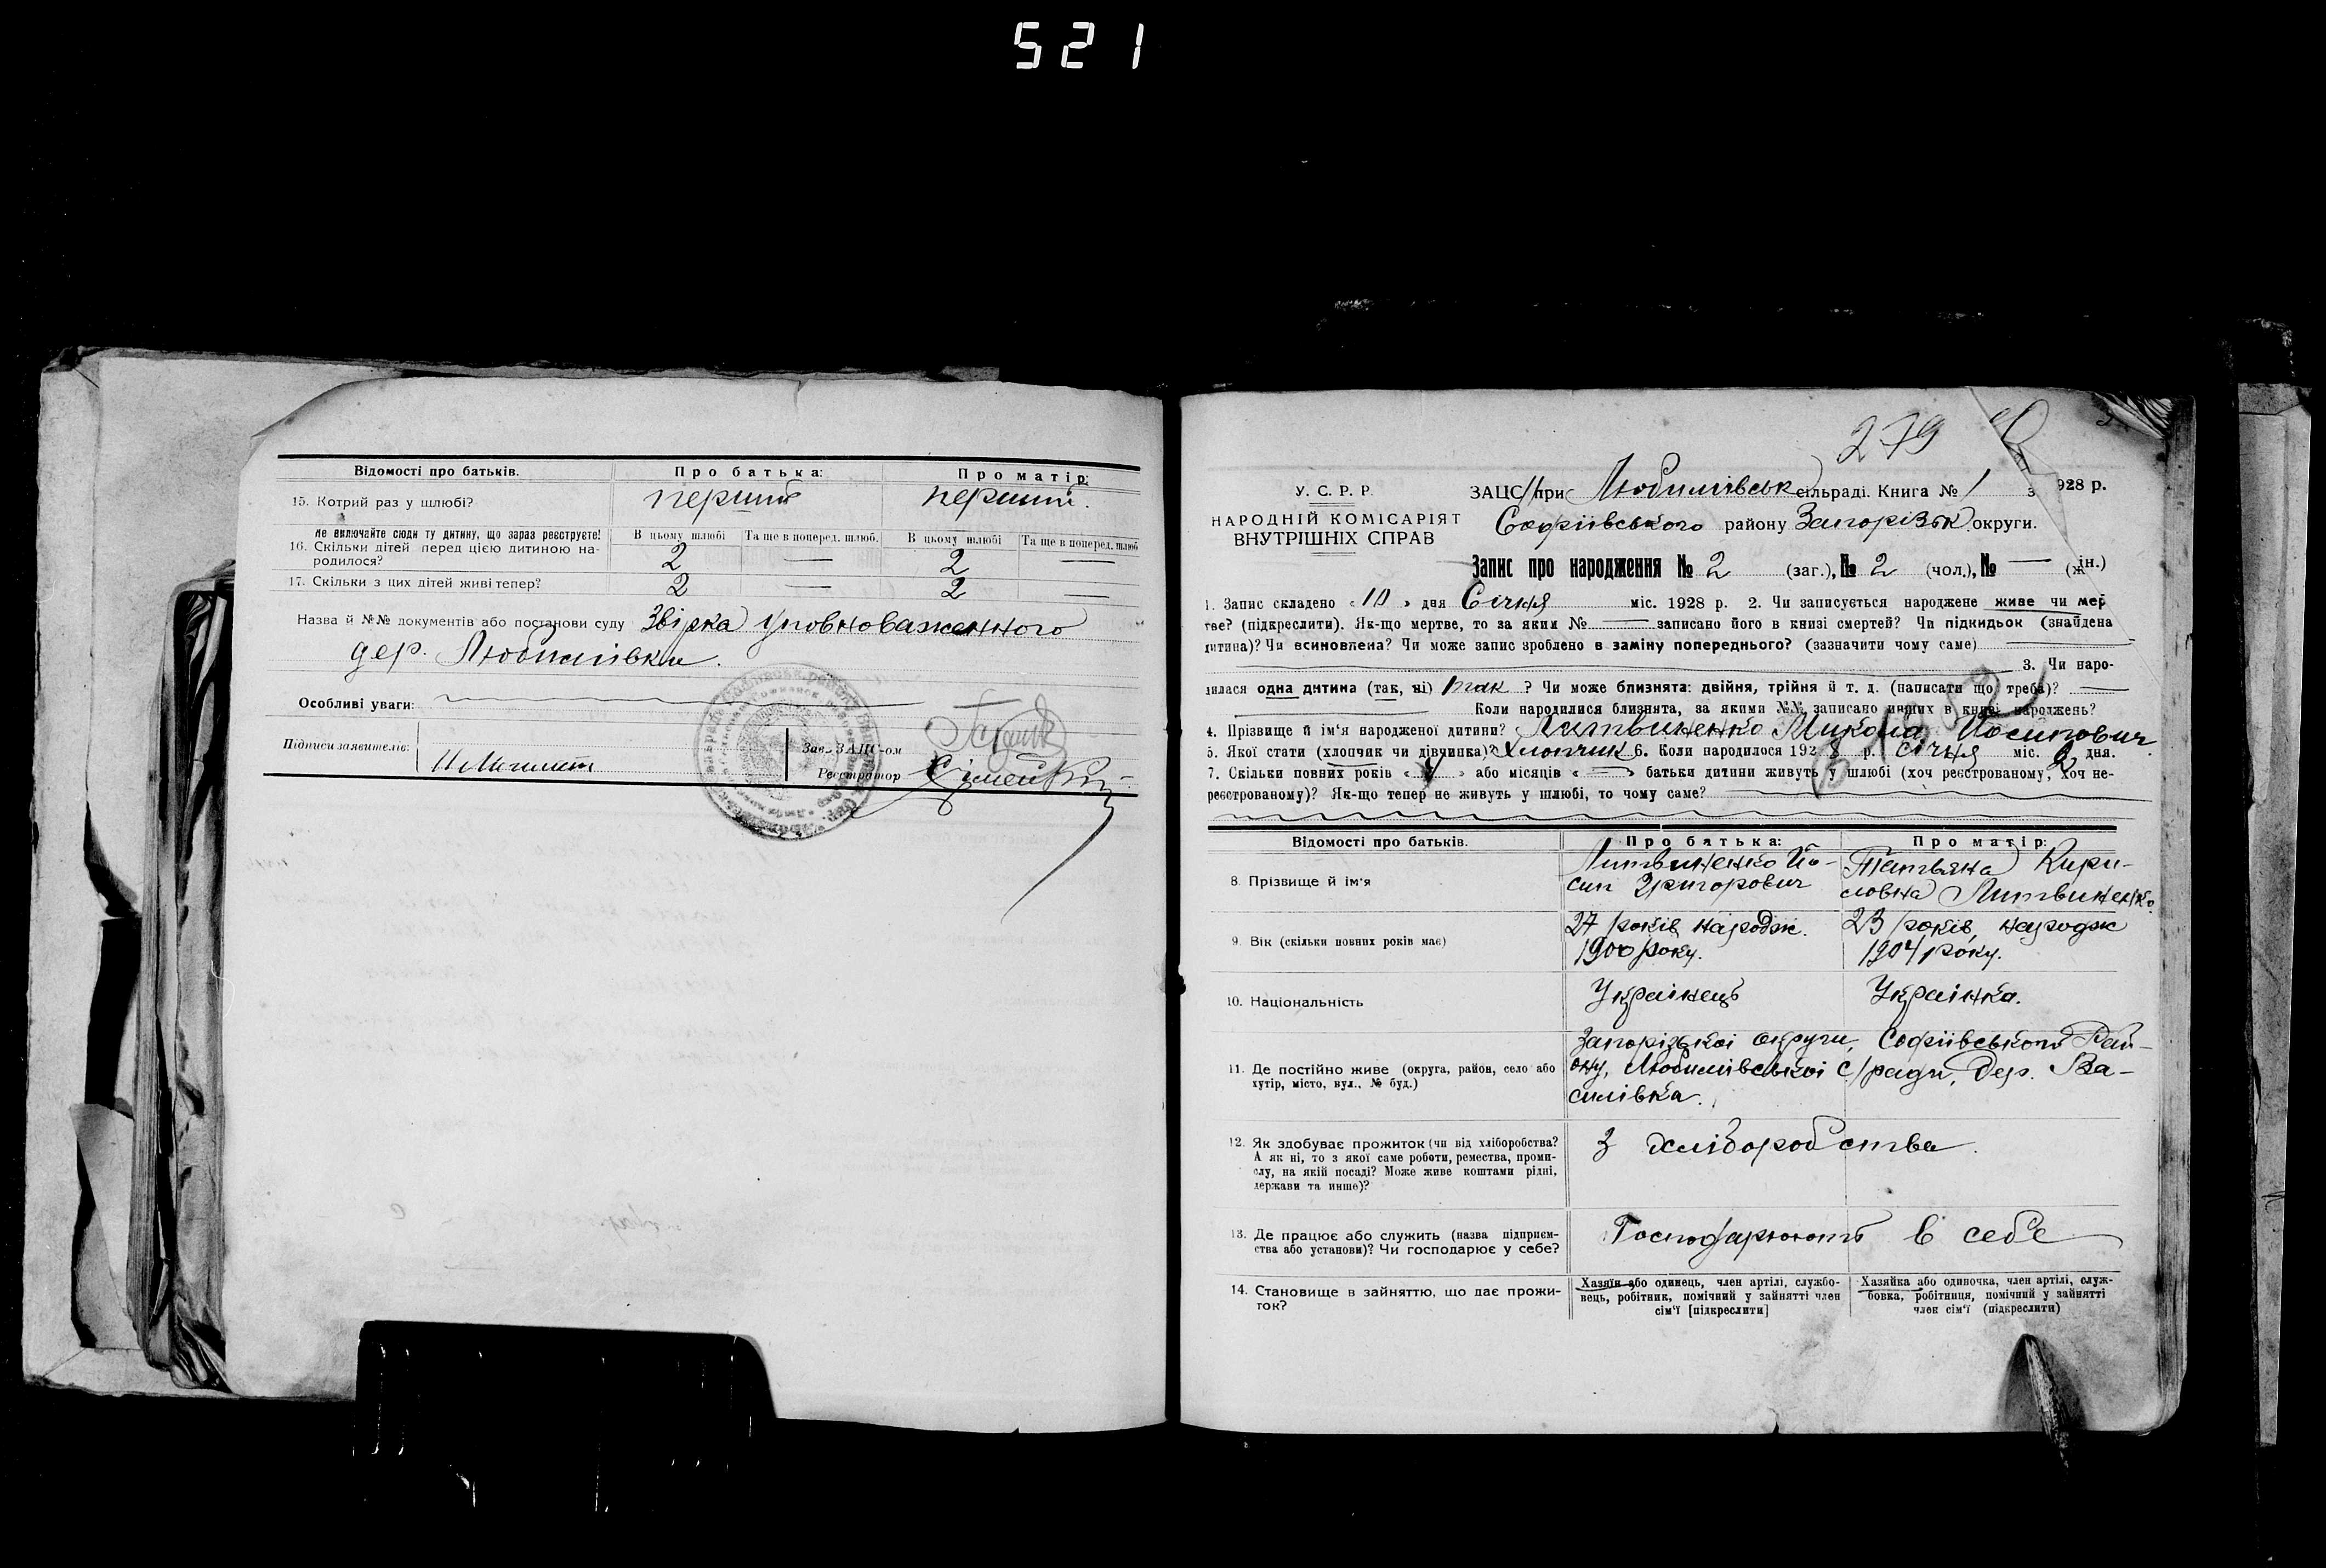 521
Відомості про батьків. Про батька: Про матір:
15. Котрий раз у шлюбі? перший перший.
Не включайте сюди ту дитину, що зараз реєструєте! В цьому шлюбі Та ще в поперед. шлюб. В цьому шлюбі Та ще в поперед. шлюб
16. Скільки дітей перед цією дитиною на-
родилося? 2 — 2 —
17. Скільки з цих дітей живі тепер? 2 — 2 —
Назва й №№ документів або постанови суду Звірка уповноваженного
дер. Любимівки.
Особливі уваги:
Підписи заявителів:
Зав. ЗАЦС-ом
Реєстратор
279
У. С. Р. Р.
НАРОДНІЙ КОМІСАРІЯТ
ВНУТРІШНІХ СПРАВ
ЗАЦС при Любимівськ сільраді. Книга № 1 з 928 р.
Софіівського району Запорізьк округи.
Запис про народження № 2 (заг.), № 2 (чол.), № — (жін.)
1. Запис складено «10» дня Січня міс. 1928 р. 2. Чи записується народжене живе чи мер
тве? (підкреслити). Як-що мертве, то за яким № — записано його в книзі смертей? Чи підкидьок (знайдена
дитина)? Чи всиновлена? Чи може запис зроблено в заміну попереднього? (зазначити чому саме) —
3. Чи наро-
дилася одна дитина (так, ні) так ? Чи може близнята: двійня, трійня й т. д. (написати що треба)? —
Коли народилися близнята, за якими №№ записано инших в книзі народжень?
4. Прізвище й ім'я народженої дитини? Литвиненко Микола Йосипович.
5. Якої стати (хлопчик чи дівчинка)? Хлопчик 6. Коли народилося 1928 р. січня міс. 2 дня.
7. Скільки повних років « » або місяців «—» батьки дитини живуть у шлюбі (хоч реєстрованому, хоч не-
реєстрованому)? Як-що тепер не живуть у шлюбі, то чому саме?
Відомості про батьків. Про батька: Про матір:
8. Прізвище й ім'я Литвиненко Йо- Татьяна Кири-
сип Григорович ловна Литвиненко.
9. Вік (скільки повних років має) 27 років народж. 23 років, народж
1900 року. 1904 року.
10. Національність Українець Українка.
11. Де постійно живе (округа, район, село або
хутір, місто, вул., № буд.)
Запорізькоі округи, Софіівського Рай-
ону, Любимівськоі с/ради, Дер. Ва-
силівка.
12. Як здобуває прожиток (чи від хліборобства?
А як ні, то з якої саме роботи, ремества, проми-
слу, на якій посаді? Може живе коштами рідні,
держави та инше)?
З хліборобства.
13. Де працює або служить (назва підприєм-
ства або установи)? Чи господарює у себе?
Господарюють в себе
14. Становище в зайняттю, що дає прожи-
ток?
Хазяїн або одинець, член артілі, службо-
вець, робітник, помічний у зайнятті член
сім'ї [підкреслити]
Хазяйка або одиночка, член артілі, служ-
бовка, робітниця, помічний у зайнятті
член сім'ї (підкреслити)